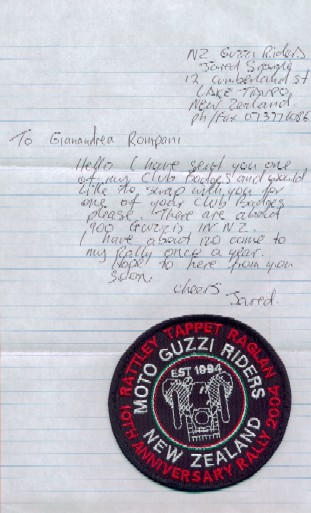 NZ Guzzi Riders
Jared
12 Cumberland St
LAKE TAUPO
New Zealand.
ph/fax
To Gianandrea Rompani
Hello I have sent you one
of my Club Badges and would
like to swap with you for
one of your club badges
please. There are about
900 Guzzis IN N.Z.
I have about 120 come to
my Rally once a year.
Hope to here from you
soon.
cheers
Jared.
10TH RATTLEY TAPPET RAGLAN
MOTO GUZZI RIDERS
EST 1994
NEW ZEALAND
ANNIVERSARY RALLY 2004